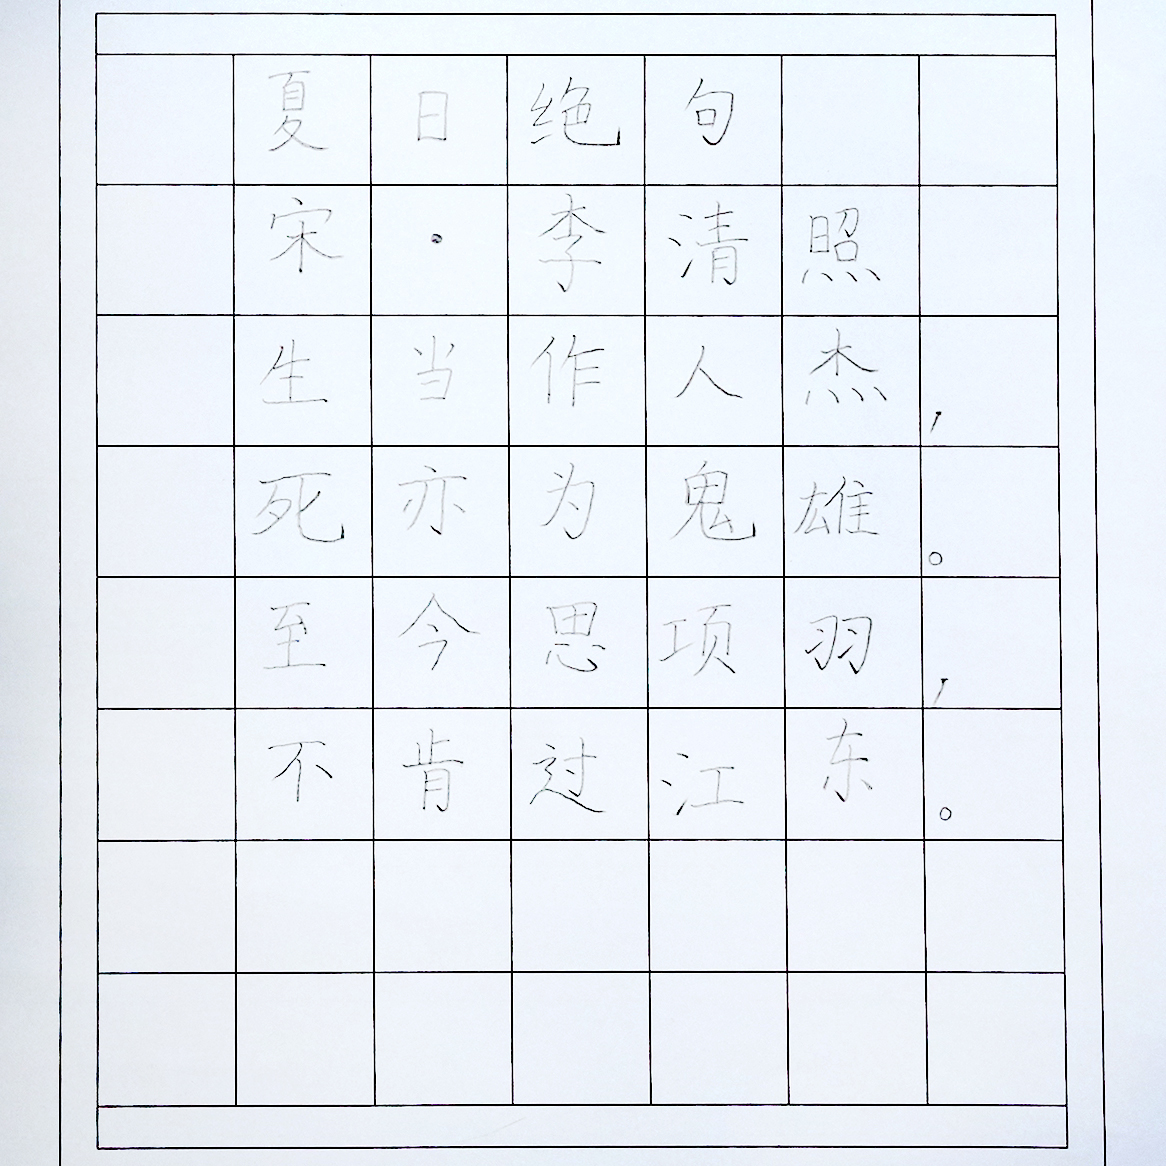 夏日绝句
宋·李清照
生当作人杰，
死亦为鬼雄。
至今思项羽，
不肯过江东。